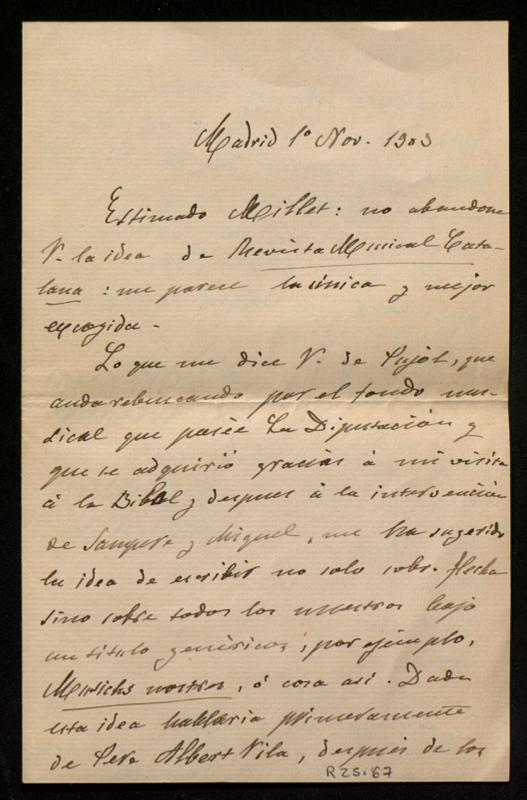 Madrid 1º Nov. 1903
Estimado Millet: no abandone
V. la idea de Revista Musical Cata-
lana: me parece la única y mejor
escogida.
Lo que me dice V. de Pujol, que
anda rebuscando por el fondo mu-
sical que posée La Diputación y
que se adquirió gracias á mi visita
á la Bibl y despues á la intervención
de Sampere y Miquel, me ha sugerido
la idea de escribir no solo sobre flecha
sino sobre todos los nuestros bajo
un titulo genérico, por ejémplo,
Musichs nostres, ó cosa asi. Dada
esta idea hablaria primeramente
de Pere Albert Vila, después de los
R25.67